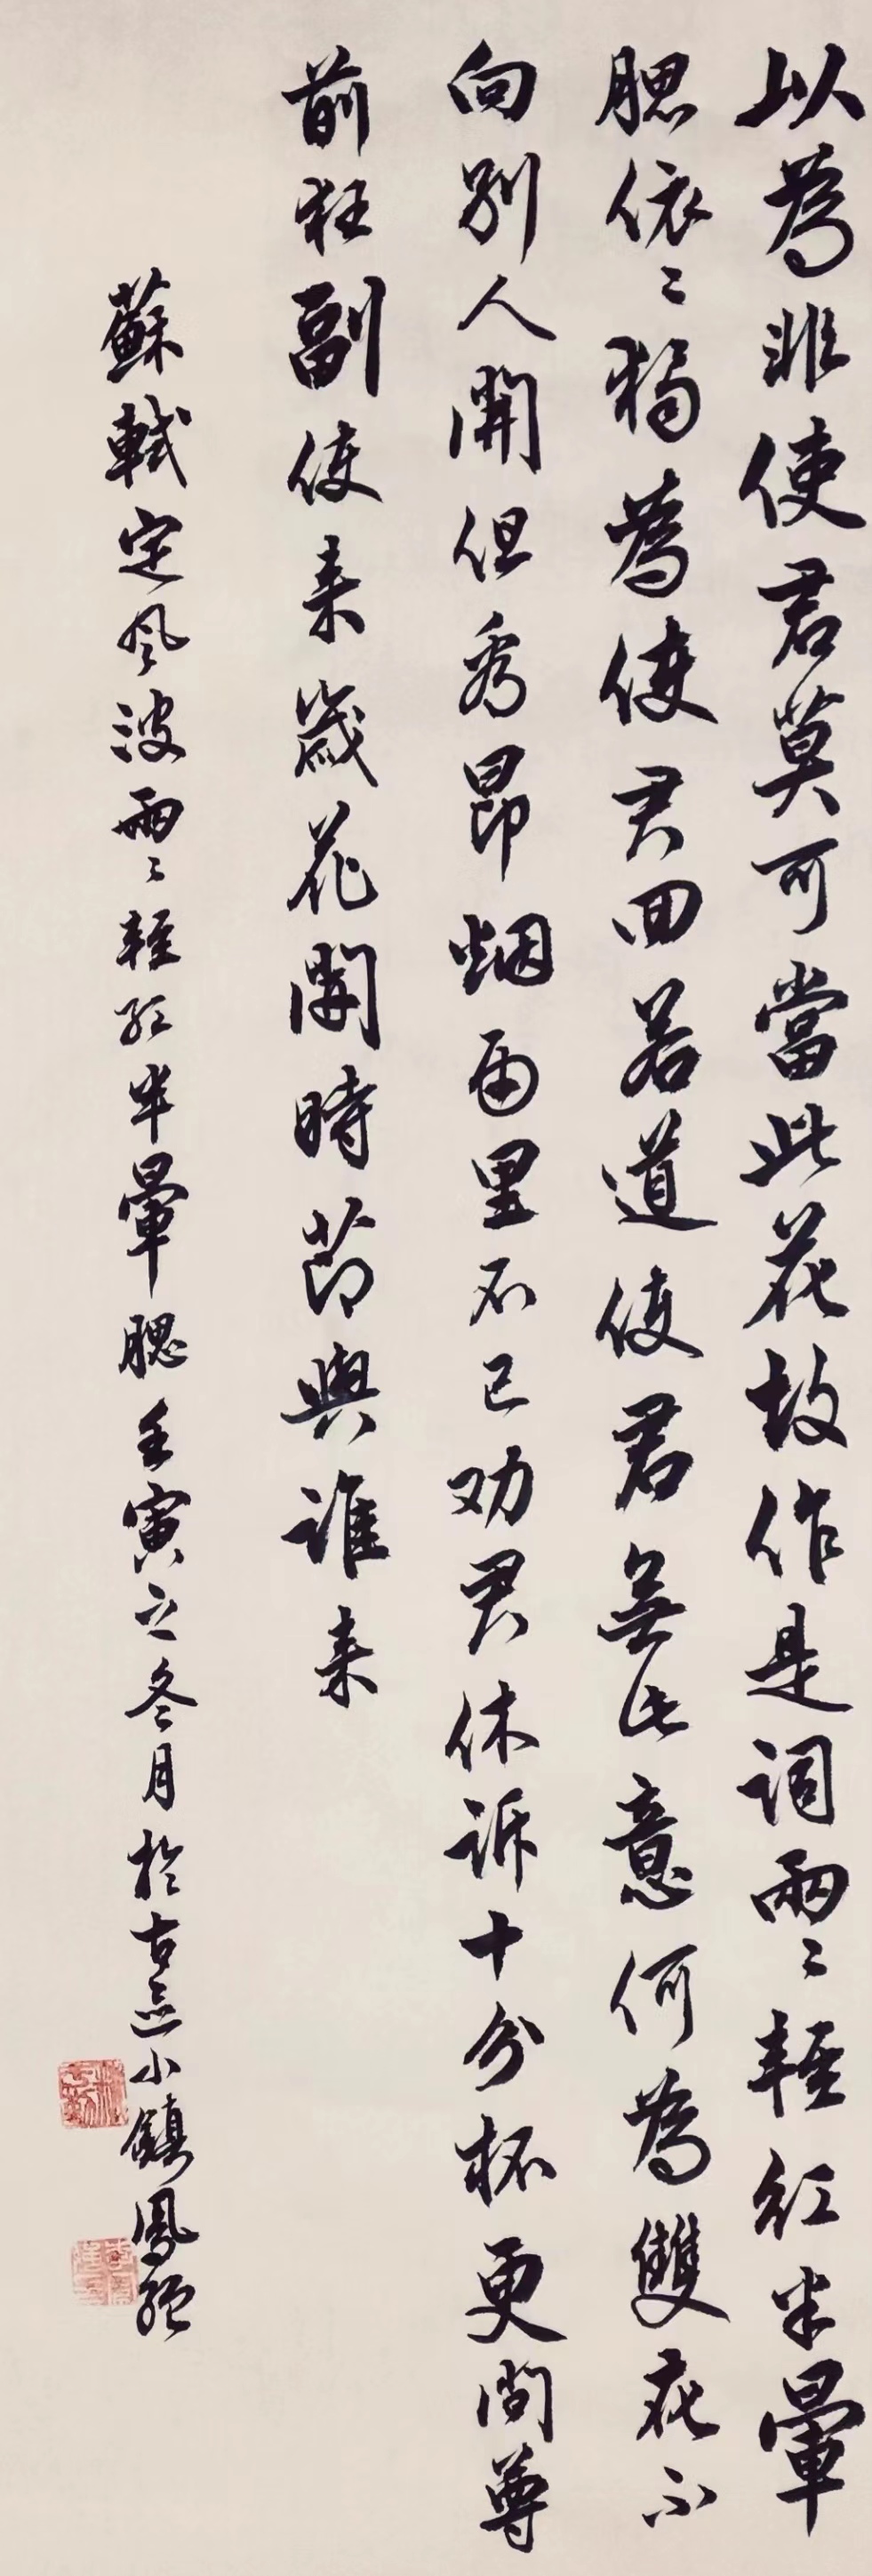 以為非使君莫可當此花故作是詞兩〻輕紅半暈
腮依〻獨為使君回若道使君無此意何為雙花不
向別人開但看昂烟雨里不已劝君休訴十分杯更問尊
前狂副使来歲花開時節與誰来
蘇軾定風波兩〻輕紅半暈腮壬寅之冬月於古燕小鎮鳳